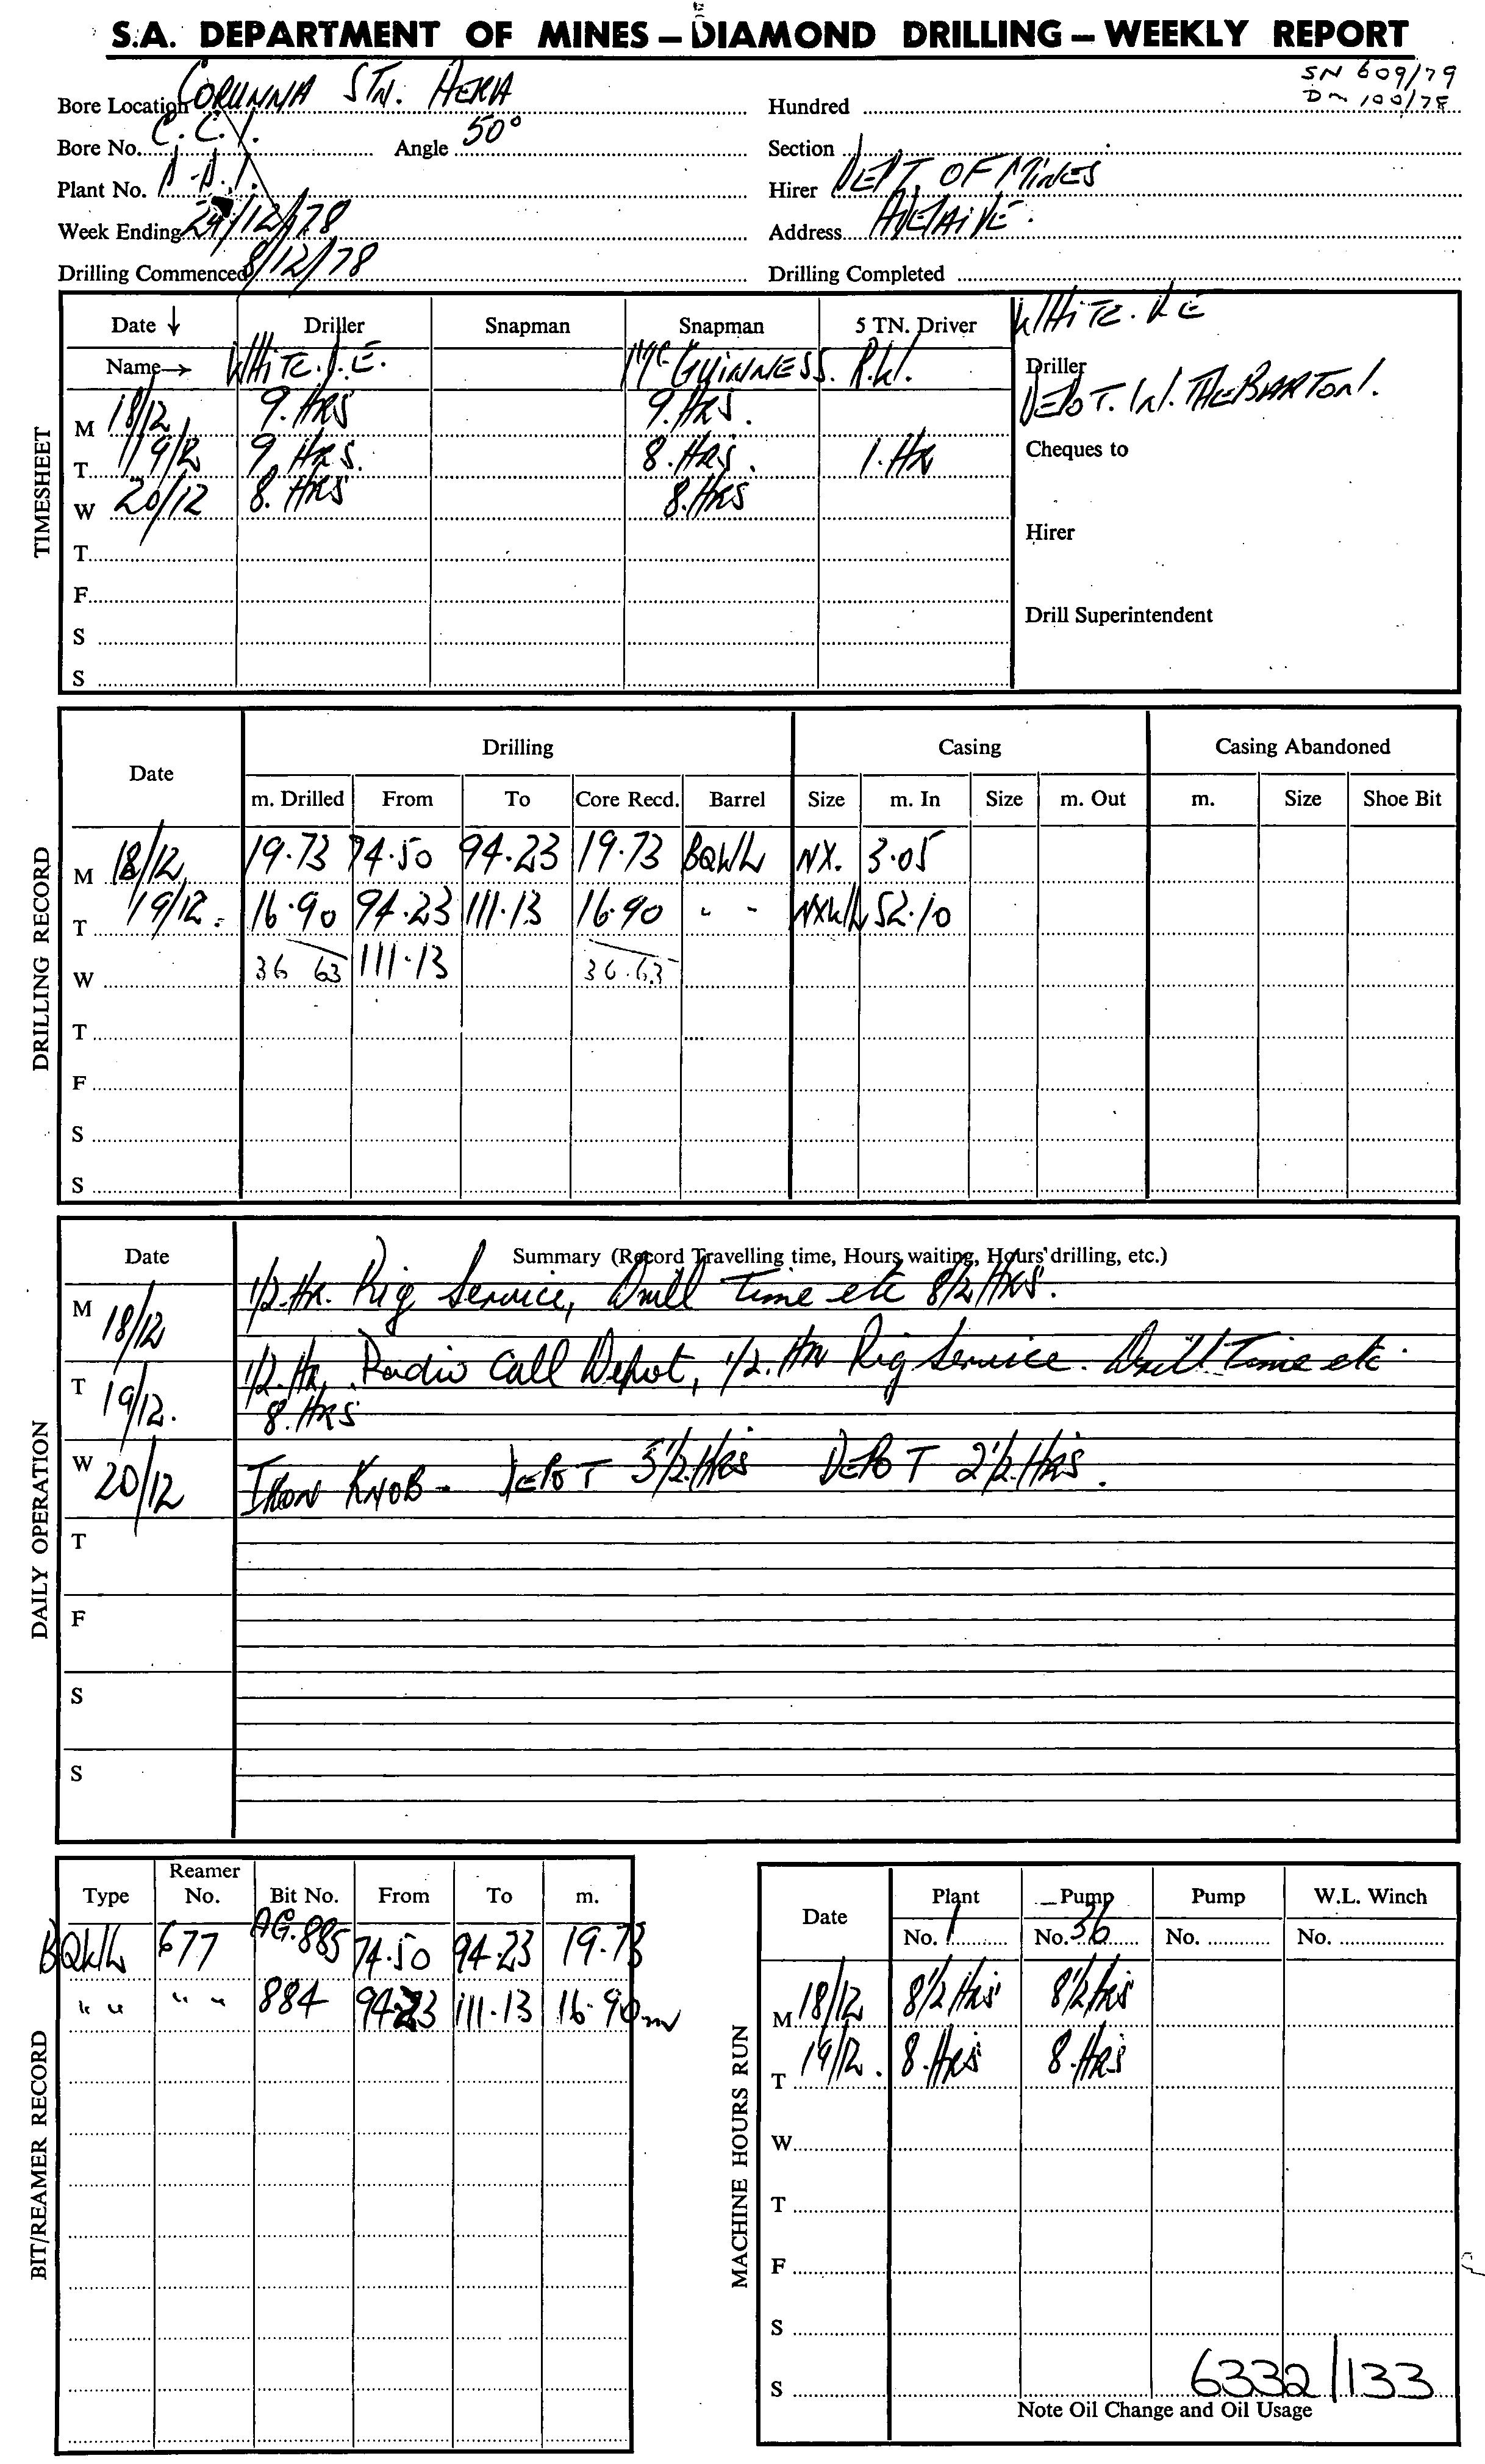 S.A. DEPARTMENT OF MINES – DIAMOND DRILLING – WEEKLY REPORT
SN 609/79
DM 100/78
Bore Location CORUNNA STN. AERIA
Hundred
Bore No. C.C.1. Angle 50°
Section
Plant No.
Hirer DEPT. OF MINES
Week Ending 24/12/78
Address
Drilling Commenced 8/12/78
Drilling Completed
TIMESHEET
Date ↓ Driller Snapman Snapman 5 TN. Driver
Name→ WHITE. D.E. McGUINNESS. R.W.
M 18/12 9. HRS 9. HRS.
T 19/12 9. HRS. 8. HRS. 1. HR
W 20/12 8. HRS 8. HRS
T
F
S
S
WHITE. D E
Driller
DEPOT. W. THEBARTON.
Cheques to
Hirer
Drill Superintendent
DRILLING RECORD
Date Drilling Casing Casing Abandoned
m. Drilled From To Core Recd. Barrel Size m. In Size m. Out m. Size Shoe Bit
M 18/12 19.73 74.50 94.23 19.73 BQWL NX. 3.05
T 19/12. 16.90 94.23 111.13 16.90 " " NXWL 52.10
W 36 63 111.13 36.63
T
F
S
S
DAILY OPERATION
Date Summary (Record Travelling time, Hours waiting, Hours drilling, etc.)
M 18/12 1/2.HR. Rig Service, Drill Time etc 8 1/2 HRS.
T 19/12. 1/2.HR. Radio Call Depot, 1/2.HR Rig Service. Drill Time etc
8. HRS
W 20/12 IRON KNOB - DEPOT 5 1/2.HRS DEPOT 2 1/2.HRS.
T
F
S
S
BIT/REAMER RECORD
Type Reamer No. Bit No. From To m.
BQWL 677 AG.885 74.50 94.23 19.73
" " " " 884 94.23 111.13 16.90m
MACHINE HOURS RUN
Date Plant Pump Pump W.L. Winch
No. 1 No. 36 No. No.
M 18/12 8 1/2 HRS 8 1/2 HRS
T 19/12. 8. HRS 8. HRS
W
T
F
S
S
6332/133
Note Oil Change and Oil Usage